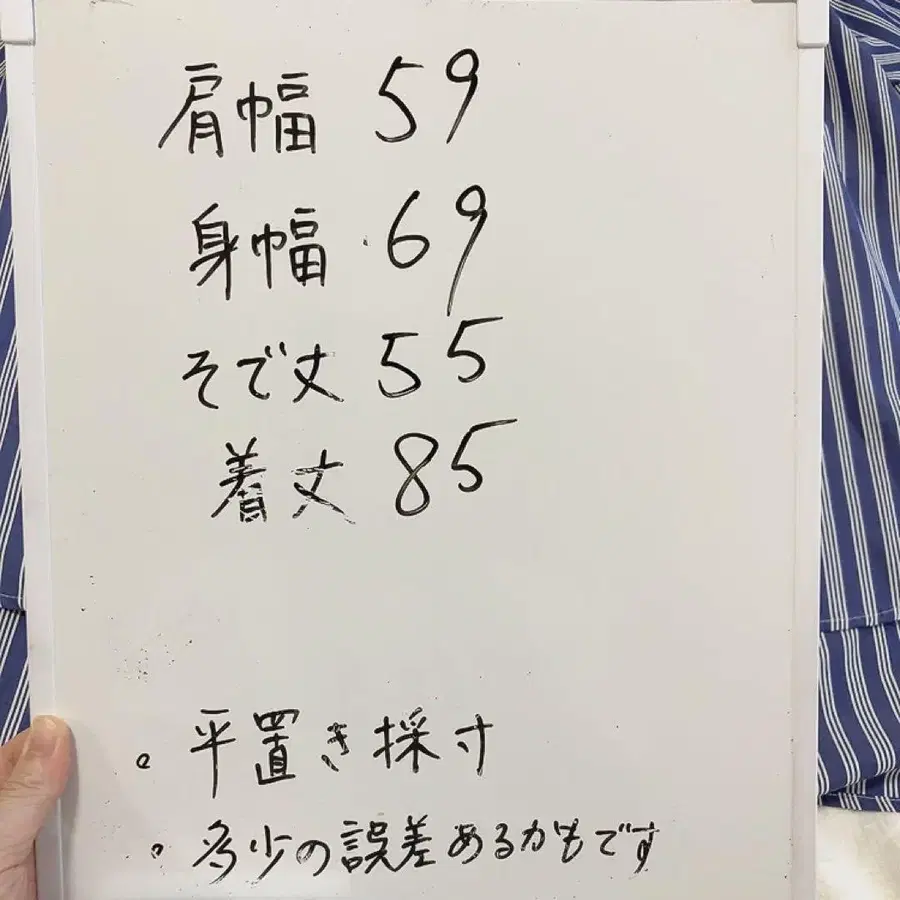 肩幅 59
身幅 69
そで丈 55
着丈 85
。平置き採寸
。多少の誤差あるかもです